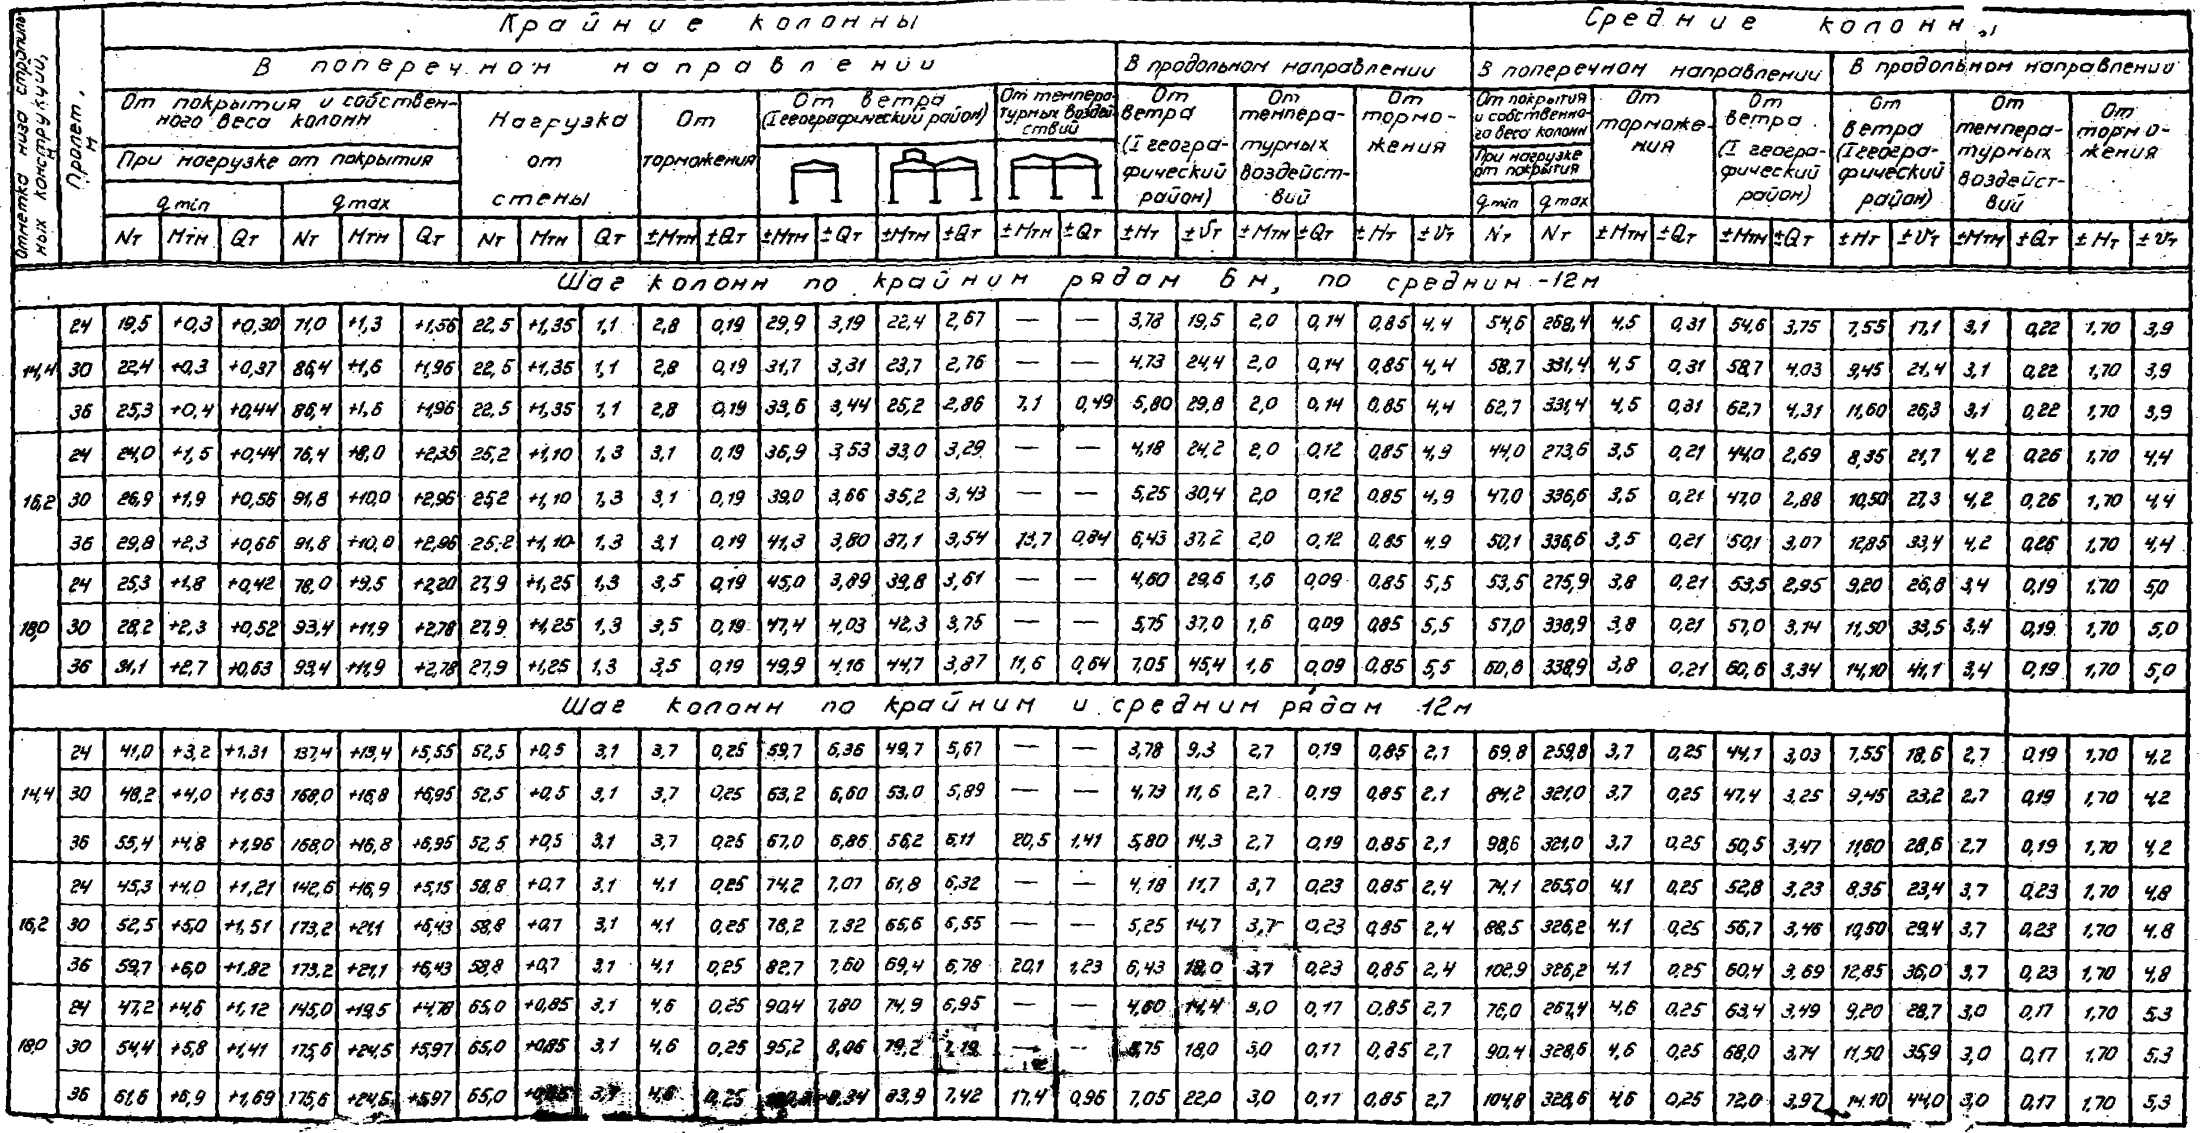 Крайние колонны Средние колонны
В поперечном направлении В продольном направлении В поперечном направлении В продольном направлении
Отметка низа стропильных конструкций, м
Пролет, м
От покрытия и собственного веса колонн
При нагрузке от покрытия
q min q max
Нагрузка от стены
От торможения
От ветра (I географический район)
От температурных воздействий
От ветра (I географический район)
От температурных воздействий
От торможения
От покрытия и собственного веса колонн
При нагрузке от покрытия
q min q max
От торможения
От ветра (I географический район)
От ветра (I географический район)
От температурных воздействий
От торможения
Nт Mтм Qт Nт Mтм Qт Nт Mтм Qт ±Mтм ±Qт ±Mтм ±Qт ±Mтм ±Qт ±Mтм ±Qт ±Hт ±Vт ±Mтм ±Qт ±Hт ±Vт Nт Nт ±Mтм ±Qт ±Mтм ±Qт ±Hт ±Vт ±Mтм ±Qт ±Hт ±Vт
Шаг колонн по крайним рядам 6 м, по средним -12м
24 19,5 +0,3 +0,30 71,0 +1,3 +1,56 22,5 +1,35 1,1 2,8 0,19 29,9 3,19 22,4 2,67 — — 3,78 19,5 2,0 0,14 0,85 4,4 54,6 268,4 4,5 0,31 54,6 3,75 7,55 17,1 3,1 0,22 1,70 3,9
14,4 30 22,4 +0,3 +0,37 86,4 +1,6 +1,96 22,5 +1,35 1,1 2,8 0,19 31,7 3,31 23,7 2,76 — — 4,73 24,4 2,0 0,14 0,85 4,4 58,7 331,4 4,5 0,31 58,7 4,03 9,45 21,4 3,1 0,22 1,70 3,9
36 25,3 +0,4 +0,44 86,4 +1,6 +1,96 22,5 +1,35 1,1 2,8 0,19 33,6 3,44 25,2 2,86 7,1 0,49 5,80 29,8 2,0 0,14 0,85 4,4 62,7 331,4 4,5 0,31 62,7 4,31 11,60 26,3 3,1 0,22 1,70 3,9
24 24,0 +1,5 +0,44 76,4 +8,0 +2,35 25,2 +1,10 1,3 3,1 0,19 36,9 3,53 33,0 3,29 — — 4,18 24,2 2,0 0,12 0,85 4,9 44,0 273,6 3,5 0,21 44,0 2,69 8,35 21,7 4,2 0,26 1,70 4,4
16,2 30 26,9 +1,9 +0,56 91,8 +10,0 +2,96 25,2 +1,10 1,3 3,1 0,19 39,0 3,66 35,2 3,43 — — 5,25 30,4 2,0 0,12 0,85 4,9 47,0 336,6 3,5 0,21 47,0 2,88 10,50 27,3 4,2 0,26 1,70 4,4
36 29,8 +2,3 +0,66 91,8 +10,0 +2,96 25,2 +1,10 1,3 3,1 0,19 41,3 3,80 37,1 3,54 13,7 0,84 6,43 37,2 2,0 0,12 0,85 4,9 50,1 336,6 3,5 0,21 50,1 3,07 12,85 33,4 4,2 0,26 1,70 4,4
24 25,3 +1,8 +0,42 78,0 +9,5 +2,20 27,9 +1,25 1,3 3,5 0,19 45,0 3,89 39,8 3,61 — — 4,60 29,6 1,6 0,09 0,85 5,5 53,5 275,9 3,8 0,21 53,5 2,95 9,20 26,8 3,4 0,19 1,70 5,0
18,0 30 28,2 +2,3 +0,52 93,4 +11,9 +2,78 27,9 +1,25 1,3 3,5 0,19 47,4 4,03 42,3 3,75 — — 5,75 37,0 1,6 0,09 0,85 5,5 57,0 338,9 3,8 0,21 57,0 3,14 11,50 33,5 3,4 0,19 1,70 5,0
36 31,1 +2,7 +0,63 93,4 +11,9 +2,78 27,9 +1,25 1,3 3,5 0,19 49,9 4,16 44,7 3,87 11,6 0,64 7,05 45,4 1,6 0,09 0,85 5,5 60,6 338,9 3,8 0,21 60,6 3,34 14,10 41,1 3,4 0,19 1,70 5,0
Шаг колонн по крайним и средним рядам 12м
24 41,0 +3,2 +1,31 137,4 +13,4 +5,55 52,5 +0,5 3,1 3,7 0,25 59,7 6,36 49,7 5,67 — — 3,78 9,3 2,7 0,19 0,85 2,1 69,8 259,8 3,7 0,25 44,1 3,03 7,55 18,6 2,7 0,19 1,70 4,2
14,4 30 48,2 +4,0 +1,63 168,0 +16,8 +6,95 52,5 +0,5 3,1 3,7 0,25 63,2 6,60 53,0 5,89 — — 4,73 11,6 2,7 0,19 0,85 2,1 84,2 321,0 3,7 0,25 47,4 3,25 9,45 23,2 2,7 0,19 1,70 4,2
36 55,4 +4,8 +1,96 168,0 +16,8 +6,95 52,5 +0,5 3,1 3,7 0,25 67,0 6,86 56,2 6,11 20,5 1,41 5,80 14,3 2,7 0,19 0,85 2,1 98,6 321,0 3,7 0,25 50,5 3,47 11,60 28,6 2,7 0,19 1,70 4,2
24 45,3 +4,0 +1,21 142,6 +16,9 +5,15 58,8 +0,7 3,1 4,1 0,25 74,2 7,07 61,8 6,32 — — 4,18 11,7 3,7 0,23 0,85 2,4 74,1 265,0 4,1 0,25 52,8 3,23 8,35 23,4 3,7 0,23 1,70 4,8
16,2 30 52,5 +5,0 +1,51 173,2 +21,1 +6,43 58,8 +0,7 3,1 4,1 0,25 78,2 7,32 65,6 6,55 — — 5,25 14,7 3,7 0,23 0,85 2,4 88,5 326,2 4,1 0,25 56,7 3,46 10,50 29,4 3,7 0,23 1,70 4,8
36 59,7 +6,0 +1,82 173,2 +21,1 +6,43 58,8 +0,7 3,1 4,1 0,25 82,7 7,60 69,4 6,78 20,1 1,23 6,43 18,0 3,7 0,23 0,85 2,4 102,9 326,2 4,1 0,25 60,4 3,69 12,85 36,0 3,7 0,23 1,70 4,8
24 47,2 +4,6 +1,12 145,0 +19,5 +4,78 65,0 +0,85 3,1 4,6 0,25 90,4 7,80 74,9 6,95 — — 4,60 14,4 3,0 0,17 0,85 2,7 76,0 267,4 4,6 0,25 63,4 3,49 9,20 28,7 3,0 0,17 1,70 5,3
18,0 30 54,4 +5,8 +1,41 175,6 +24,5 +5,97 65,0 +0,85 3,1 4,6 0,25 95,2 8,06 79,2 7,19 — — 5,75 18,0 3,0 0,17 0,85 2,7 90,4 328,6 4,6 0,25 68,0 3,74 11,50 35,9 3,0 0,17 1,70 5,3
36 61,6 +6,9 +1,69 175,6 +24,5 +5,97 65,0 +0,85 3,1 4,6 0,25 8,34 83,9 7,42 17,4 0,96 7,05 22,0 3,0 0,17 0,85 2,7 104,8 328,6 4,6 0,25 72,0 3,97 14,10 44,0 3,0 0,17 1,70 5,3